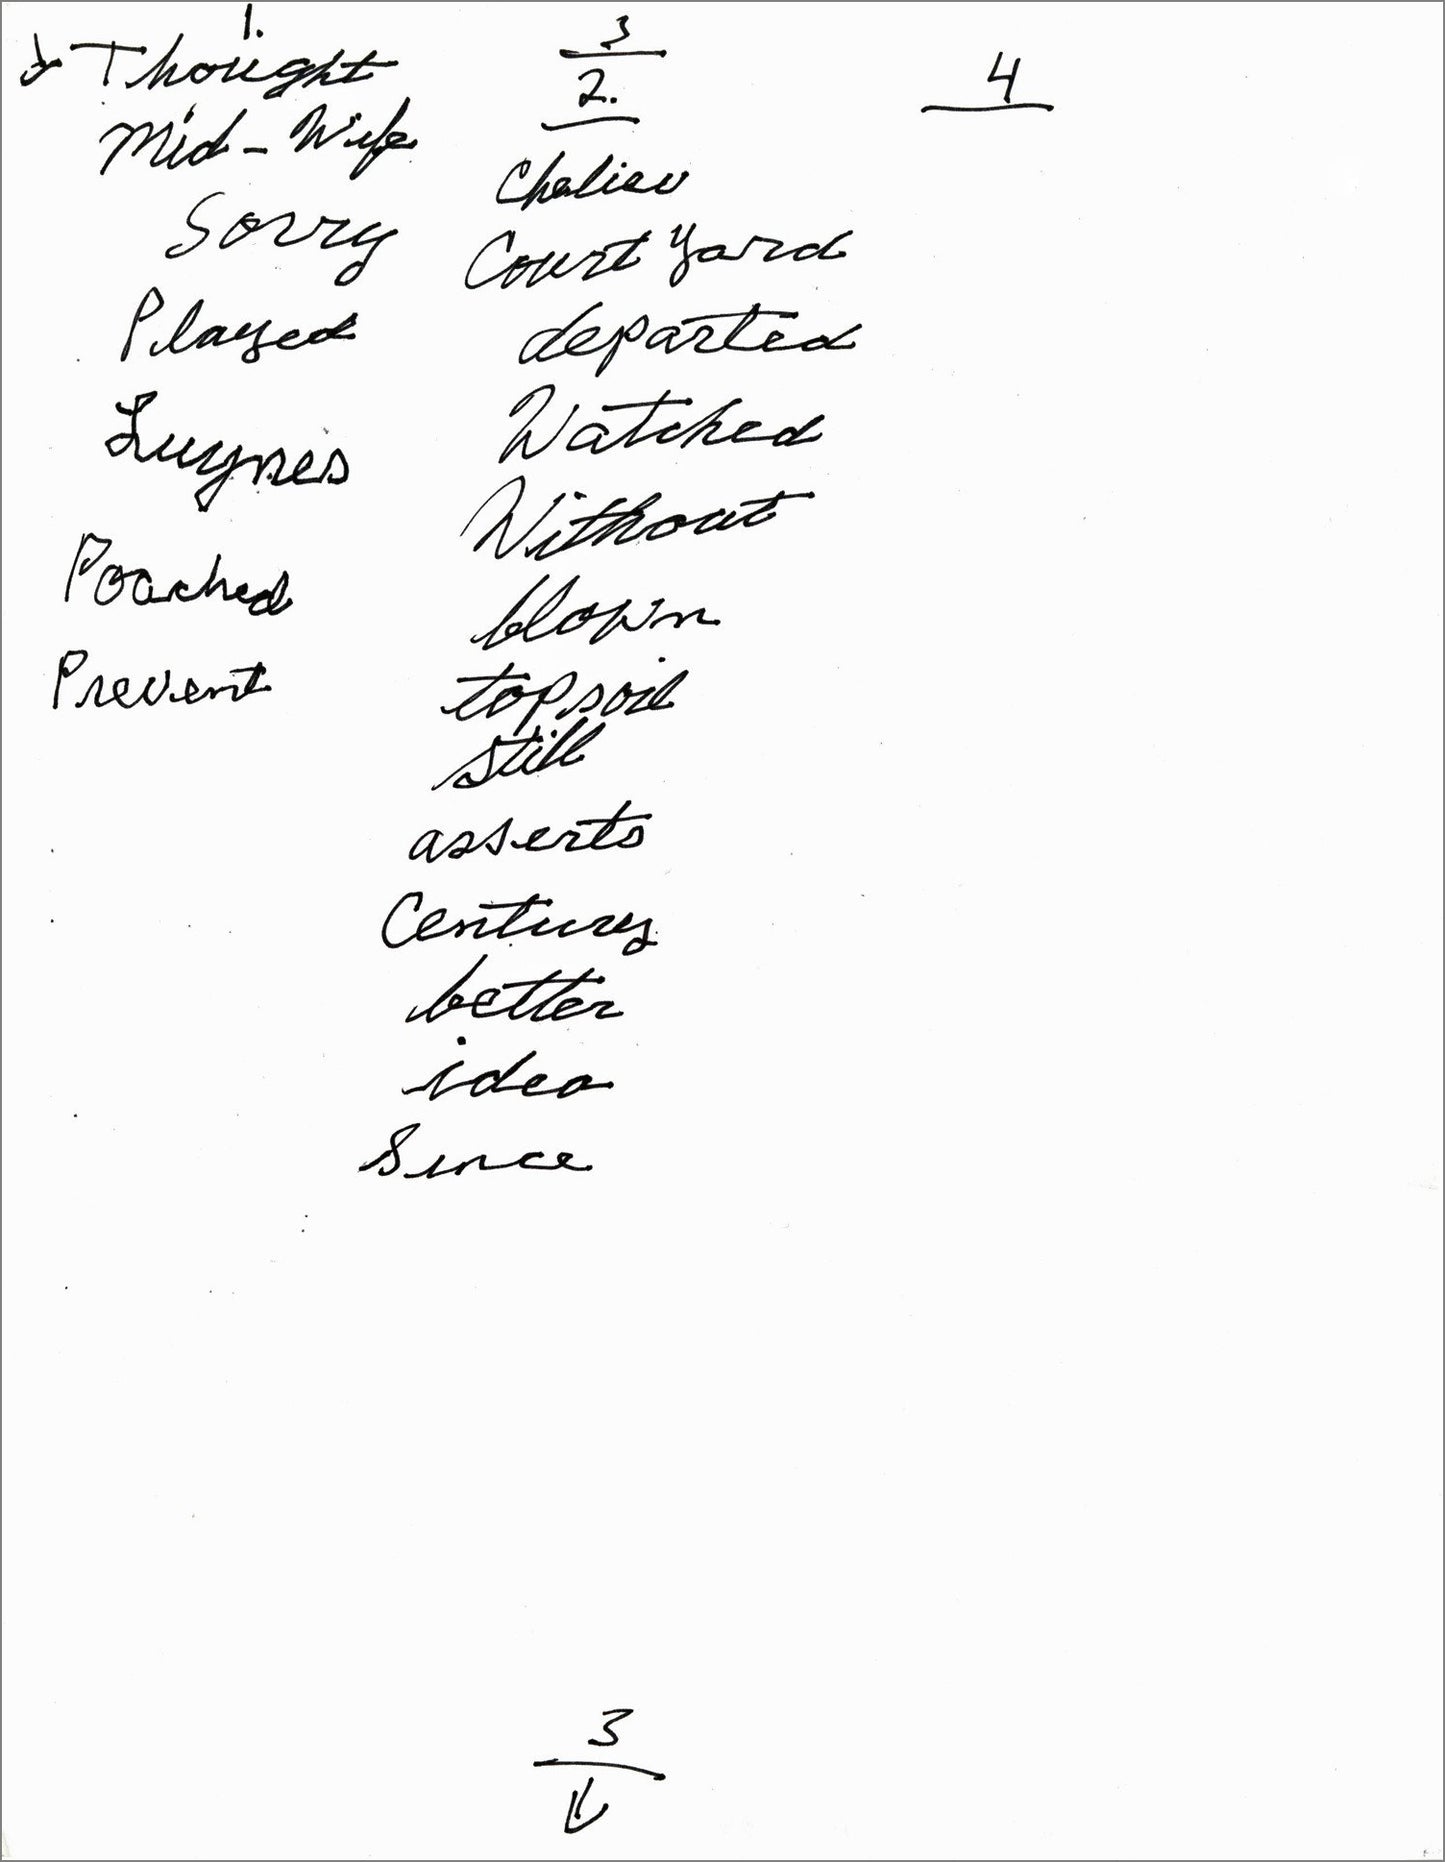 1.
Thought
Mid-Wife
Sorry
Played
Luynes
Poached
Prevent
3
2.
Court Yard
departed
Watched
Without
blown
topsoil
still
asserts
Century
better
idea
Since
3
4